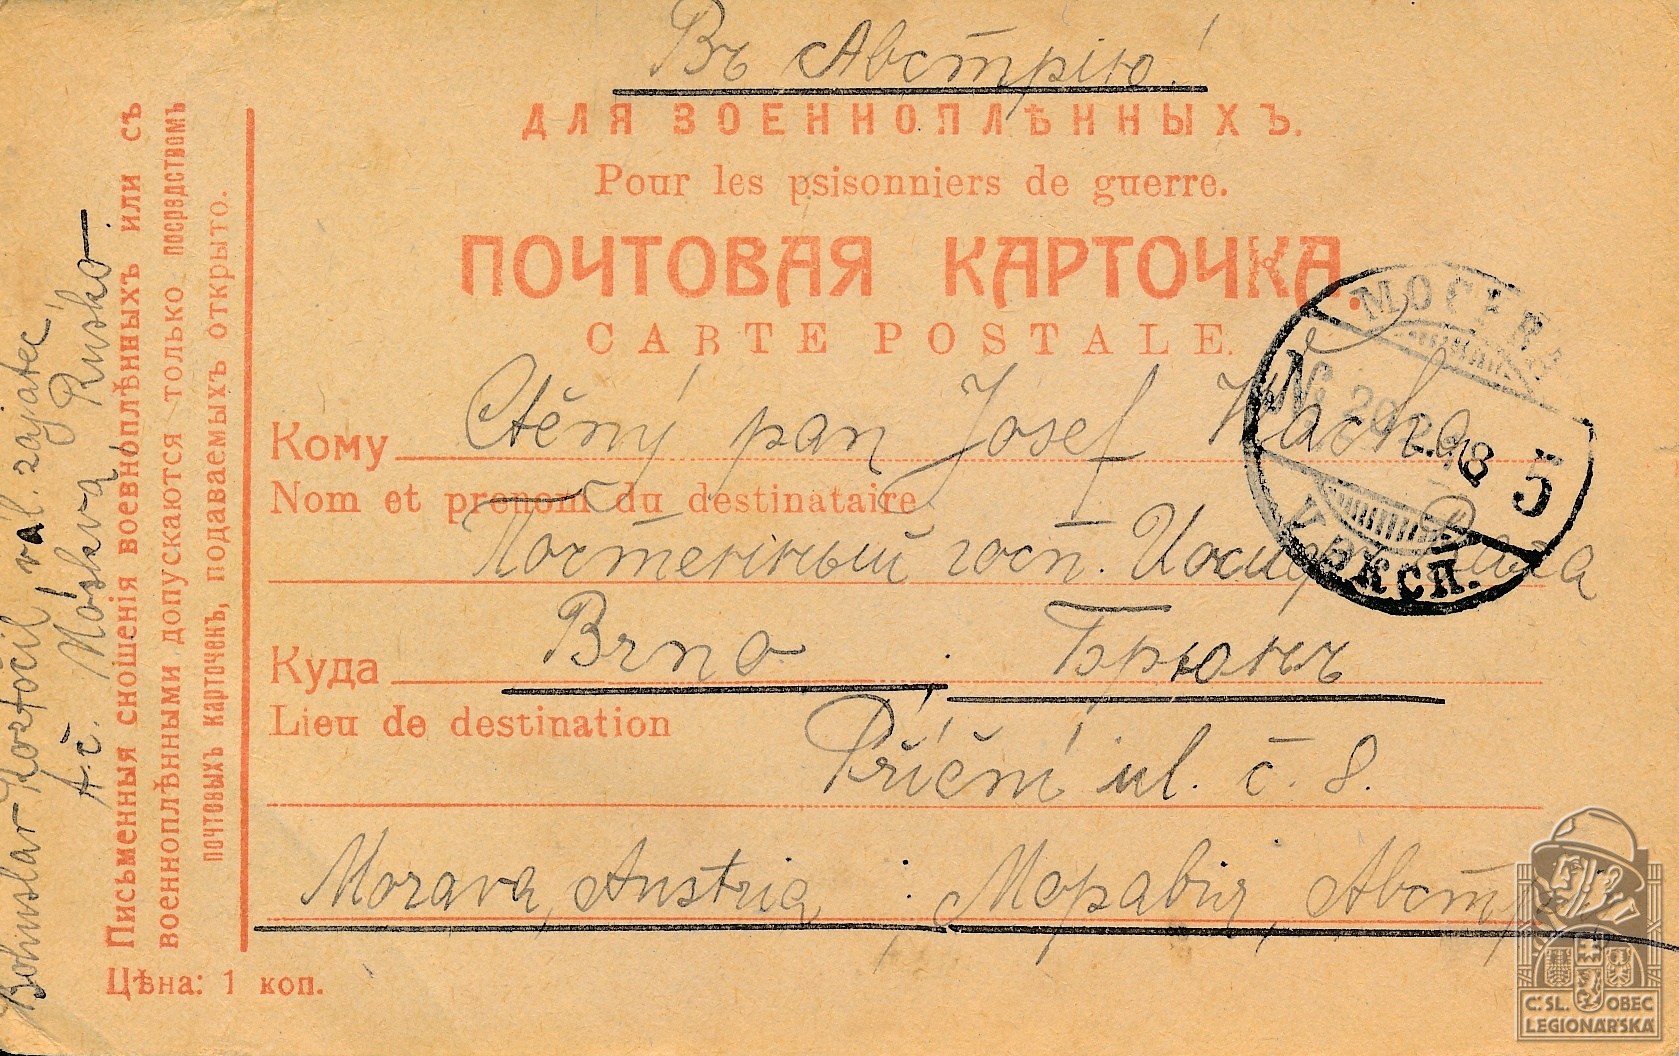 Въ Австрію!
ДЛЯ ВОЕННОПЛѢННЫХЪ.
Pour les psisonniers de guerre.
ПОЧТОВАЯ КАРТОЧКА.
CARTE POSTALE.
Кому Ctěný pan Josef Vacha
Nom et prenom du destinataire
Почтенный госп. Иосифъ
Куда Brno : Брюннъ
Lieu de destination
Příční ul. č. 8.
Morava, Austria : Моравія, Австр
Цѣна: 1 коп.
Письменныя сношенія военноплѣнныхъ или съ
военноплѣнными допускаются только посредствомъ
почтовыхъ карточекъ, подаваемыхъ открыто.
Bohuslav Kozločil, vál. zajatec
A.č. Moskva Rusko.
МОСКВА
20.2.18
5
V ЭКСП.
Č. SL. OBEC
LEGIONÁŘSKÁ